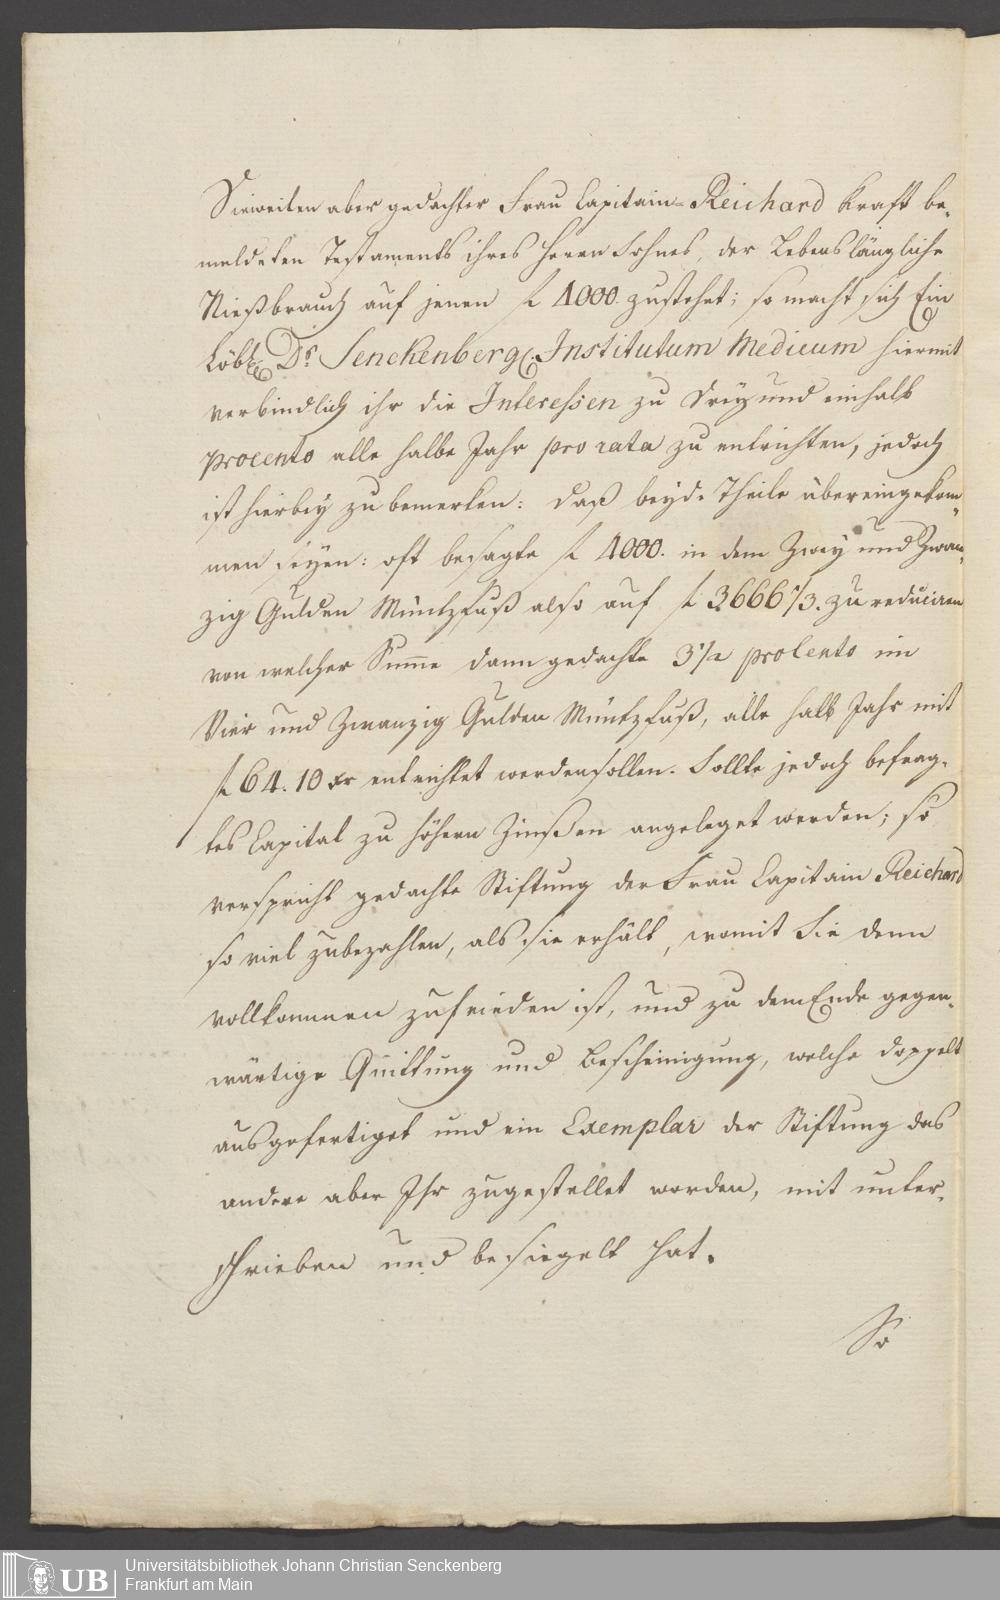 Dieweilen aber gedachter Frau Capitain Reichard Kraft be-
meldeten Testaments ihres Herrn Sohnes, der Lebenslängliche
Nießbrauch auf jenen f 4000. zustehet; so macht sich Ein
Löbl. Dr. Senckenberg. Institutum Medicum hiermit
verbindlich ihr die Interessen zu Drey und einhalb
procento alle halbe Jahr pro rata zu entrichten, jedoch
ist hierbey zu bemerken: daß beyde Theile übereingekom-
men seyen: oft besagte f 4000. in dem Zwey und Zwan-
zig Gulden Müntzfuß also auf f 3666 2/3. zu reduciren
von welcher Sume dann gedachte 3 1/2 proCento im
Vier und Zwanzig Gulden Müntzfuß, alle halb Jahr mit
f 64. 10 xr entrichtet werden sollen. Sollte jedoch befrag-
tes Capital zu höhern Zinßen angeleget werden; so
verspricht gedachte Stiftung der Frau Capitain Reichard
so viel zubezahlen, als sie erhält, womit Sie denn
vollkommen zufrieden ist, und zu dem Ende gegen-
wärtige Quittung und Bescheinigung, welche doppelt
ausgefertiget und ein Exemplar der Stiftung das
andere aber Ihr zugestellet worden, mit unter-
schrieben und besiegelt hat.
So
UB Universitätsbibliothek Johann Christian Senckenberg
Frankfurt am Main